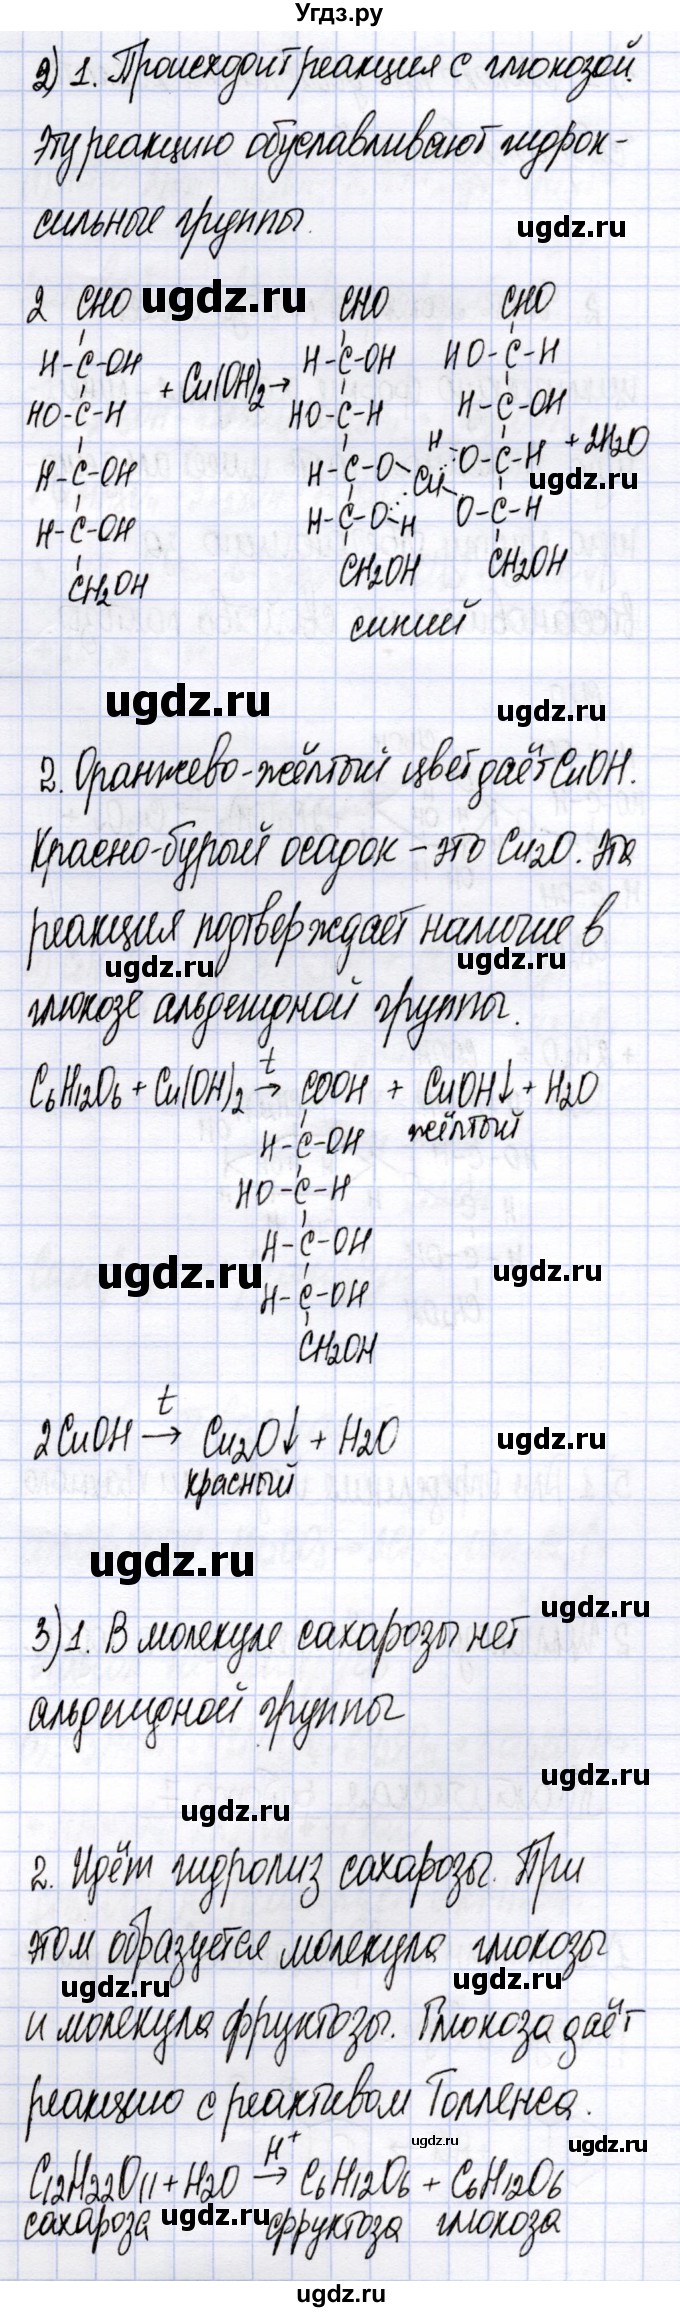 Угдз.ру
2) 1. Происходит реакция с глюкозой.
Эту реакцию обуславливают гидрок-
сильные группы.
ugdz.ru
2 CHO ugdz.ru CHO CHO
H-C-OH + Cu(OH)2 → H-C-OH HO-C-H
HO-C-H HO-C-H H-C-OH
H-C-OH H-C-O Cu H O-C-H + 2H2O
ugdz.ru
H-C-OH H-C-O-H O-C-H
CH2OH CH2OH CH2OH
синий
ugdz.ru ugdz.ru
2. Оранжево-жёлтый цвет даёт CuOH.
Красно-бурый осадок – это Cu2O. Эта
реакция подтверждает наличие в
ugdz.ru ugdz.ru
глюкозе альдегидной группы.
C6H12O6 + Cu(OH)2 t→ COOH + CuOH↓ + H2O
жёлтый
H-C-OH
HO-C-H
H-C-OH
ugdz.ru ugdz.ru
H-C-OH
CH2OH
2CuOH t→ Cu2O↓ + H2O ugdz.ru
красный
ugdz.ru
ugdz.ru
3) 1. В молекуле сахарозы нет
альдегидной группы
ugdz.ru
ugdz.ru
2. Идёт гидролиз сахарозы. При
этом образуется молекула глюкозы
ugdz.ru ugdz.ru
и молекула фруктозы. Глюкоза даёт
реакцию с реактивом Толленса.
ugdz.ru ugdz.ru
C12H22O11 + H2O H+→ C6H12O6 + C6H12O6
сахароза ugdz.ru фруктоза глюкоза
ugdz.ru